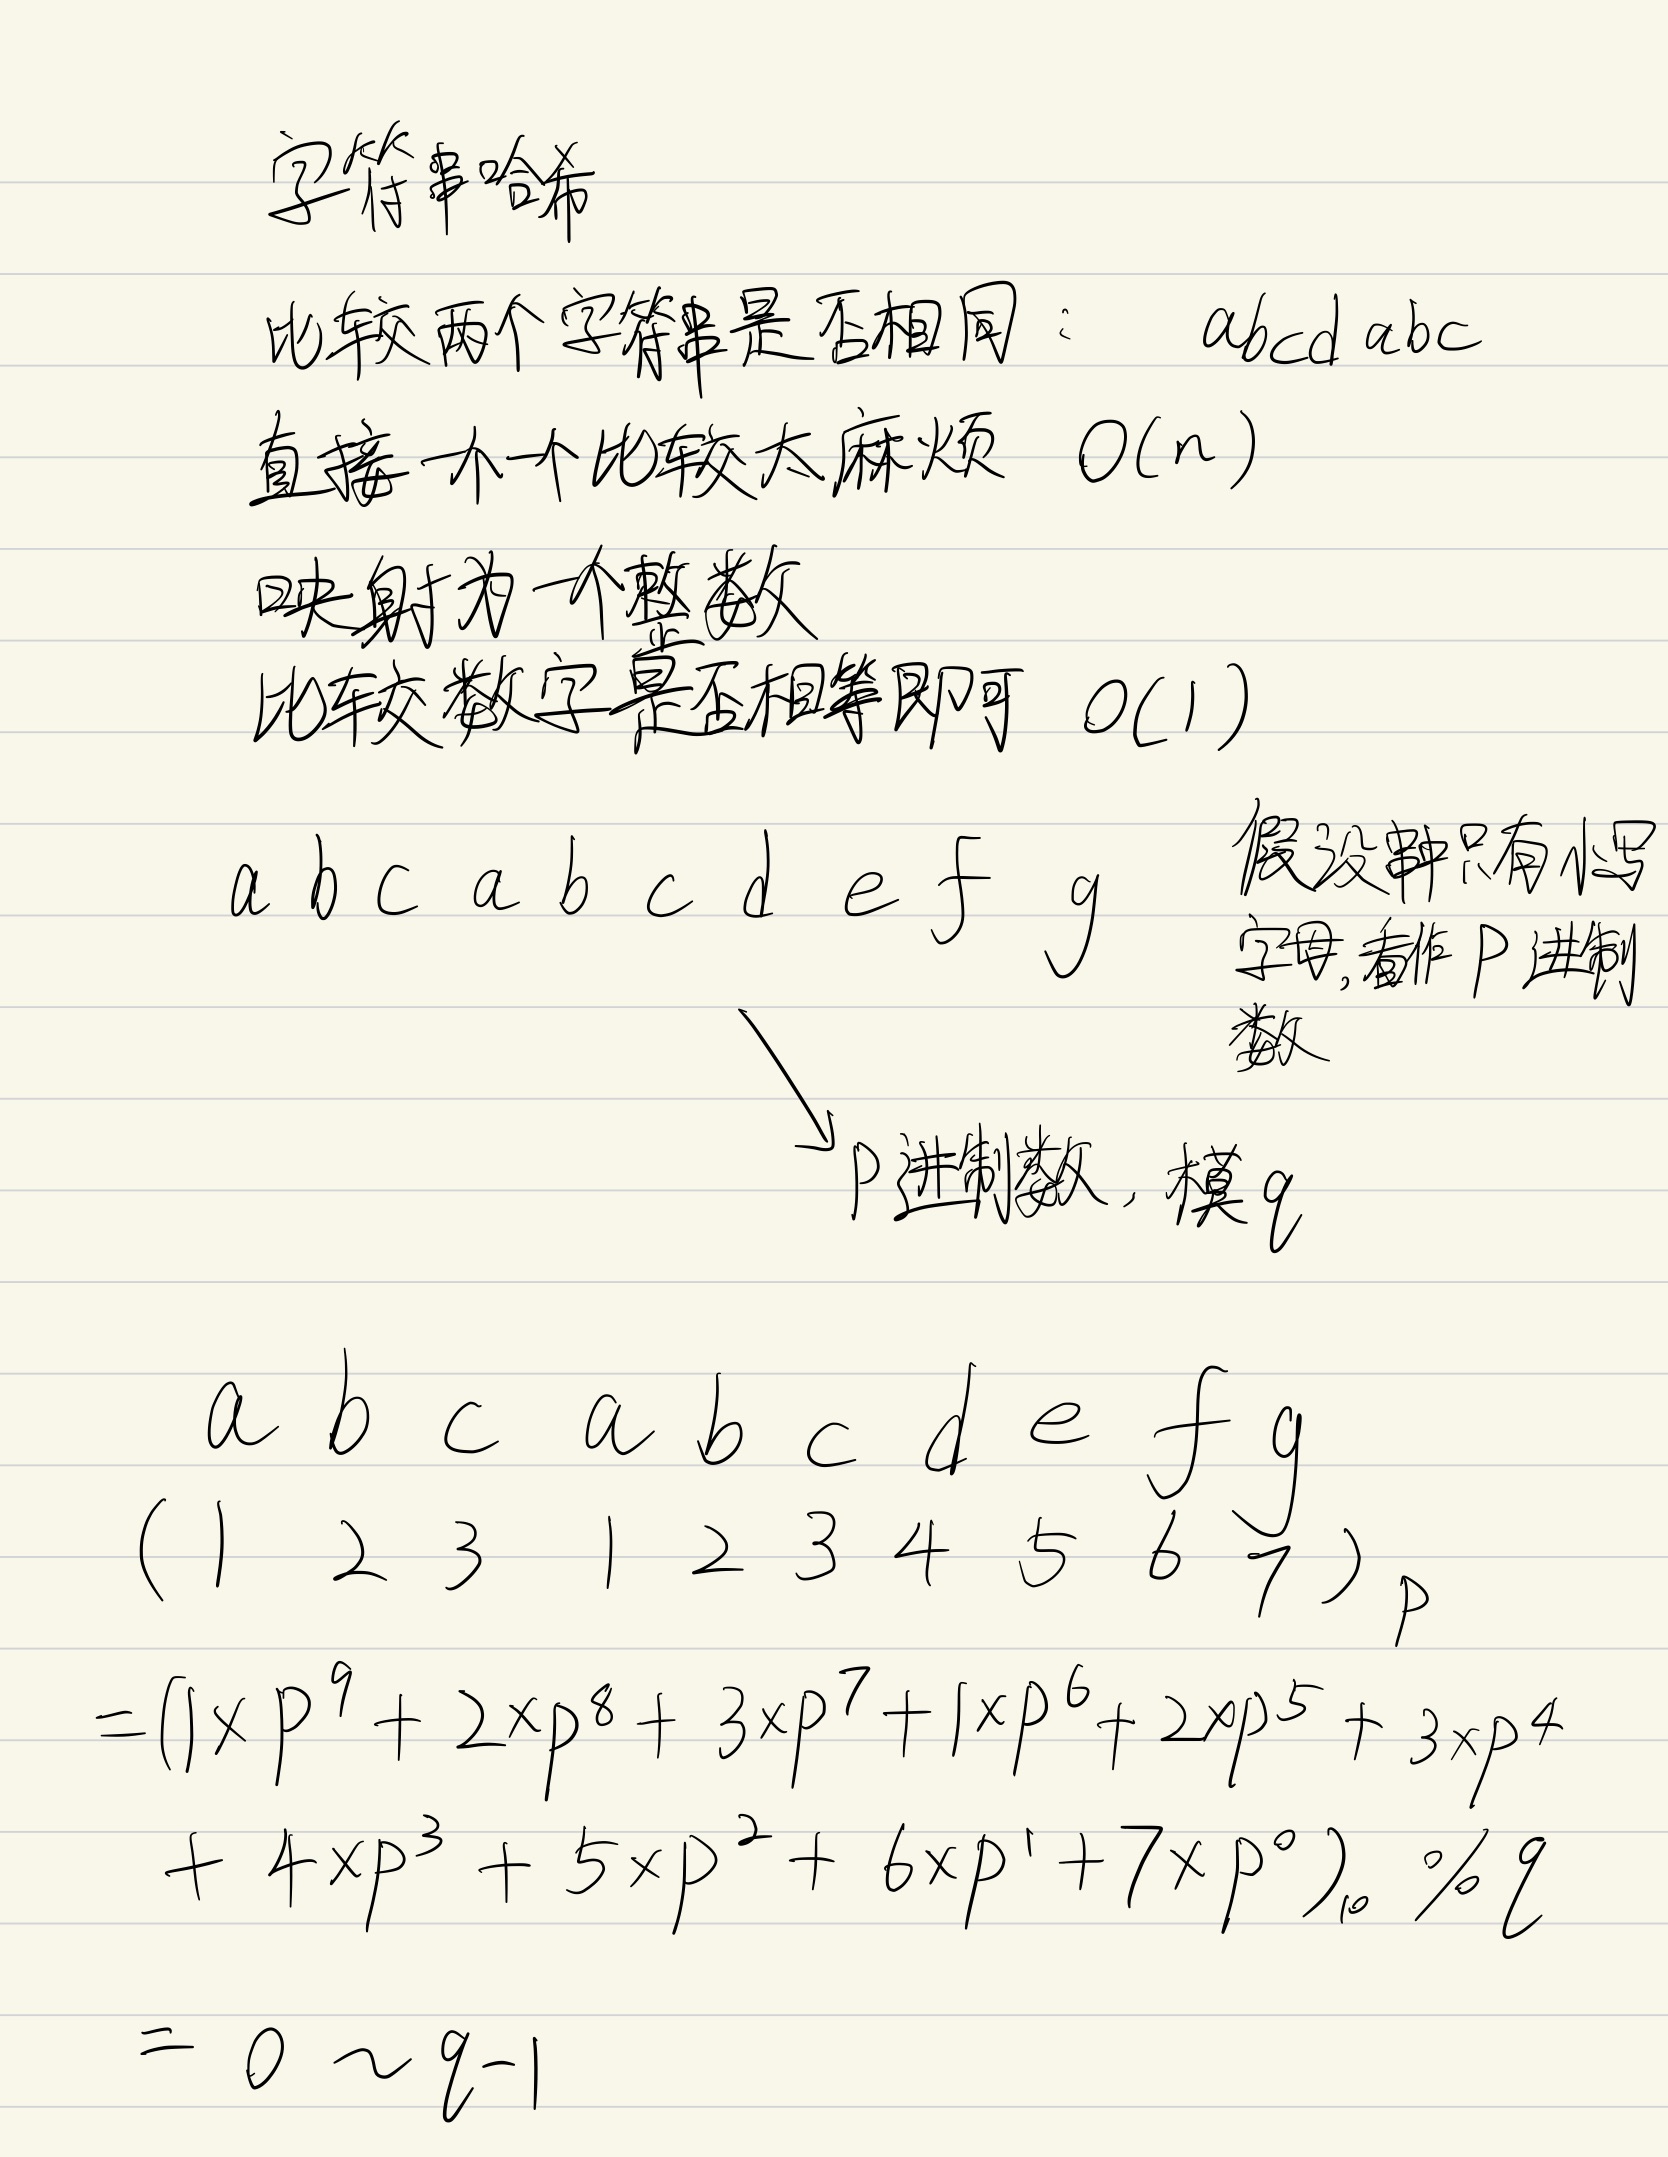 字符串哈希
比较两个字符串是否相同： abcd abc
直接一个个比较太麻烦 O(n)
映射为一个整数
比较数字是否相等即可 O(1)
a b c a b c d e f g
假设串种只有小写
字母，看作 P 进制
数
P进制数，模q
a b c a b c d e f g
(1 2 3 1 2 3 4 5 6 7)ₚ
=(1×p⁹+2×p⁸+3×p⁷+1×p⁶+2×p⁵+3×p⁴
+4×p³+5×p²+6×p¹+7×p⁰)₁₀ % q
= 0 ~ q-1